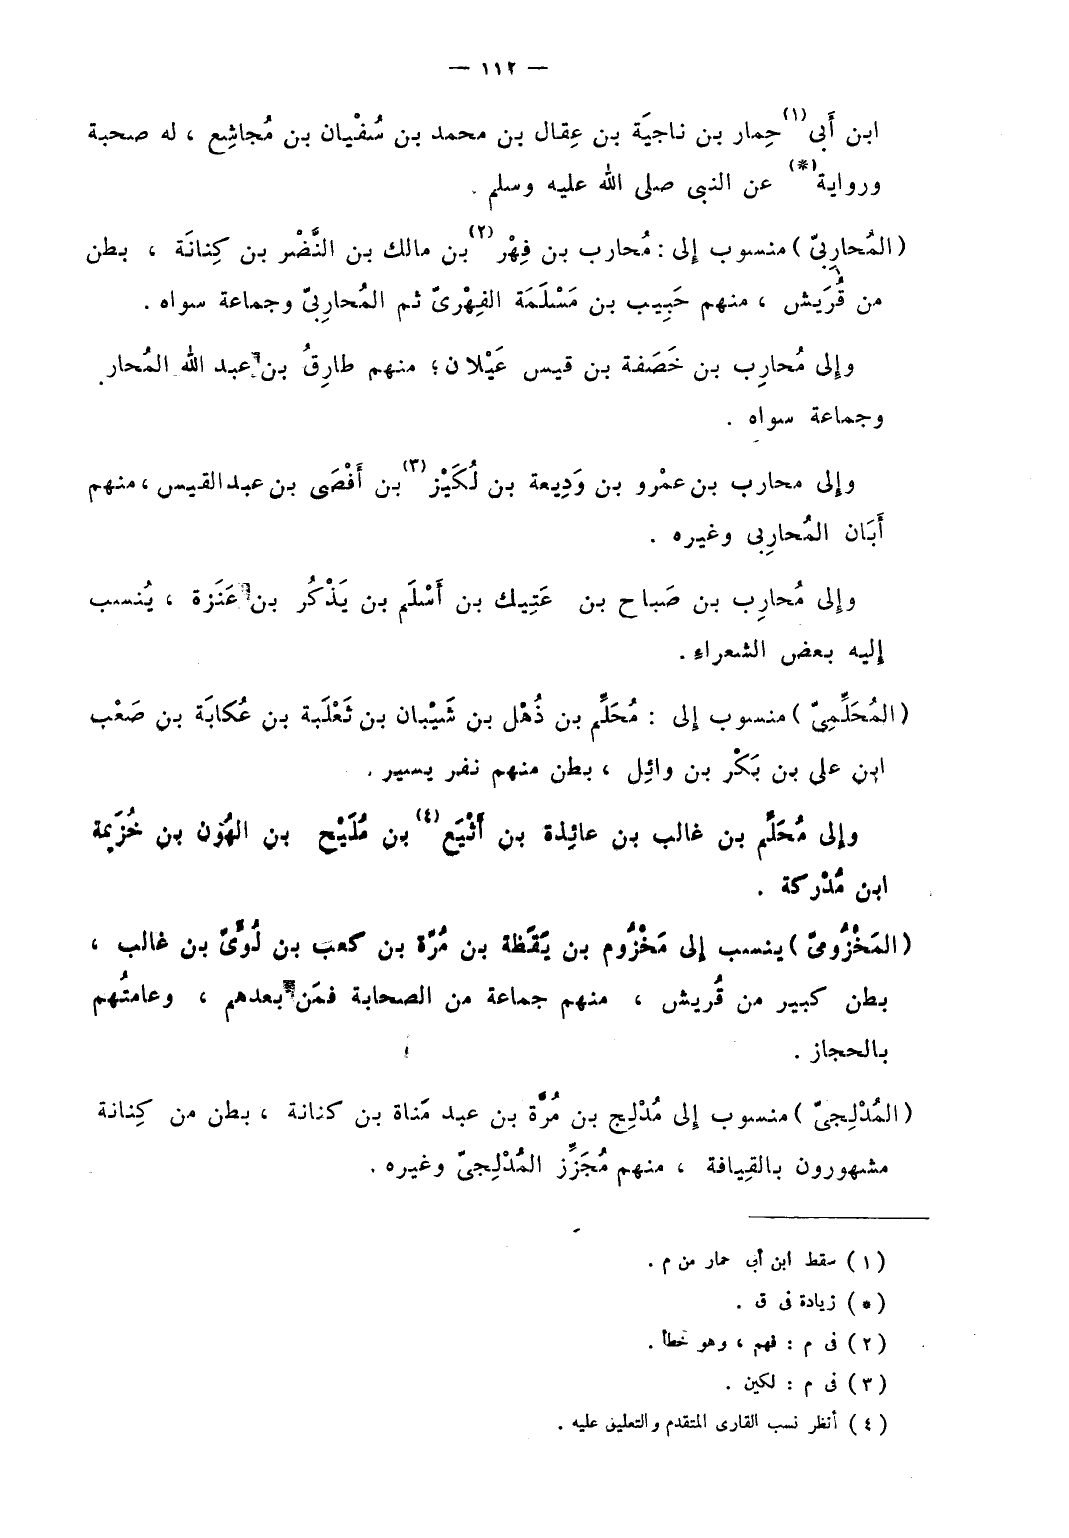 — ١١٢ —
ابن أَبى(١) حِمار بن ناجيَة بن عِقال بن محمد بن سُفْيان بن مُجاشِع ، له صحبة
ورواية(*) عن النبى صلى الله عليه وسلم .
( المُحارِبىّ ) منسوب إلى : مُحارب بن فِهْر(٢) بن مالك بن النَّضْر بن كِنانَة ، بطن
من قُرَيش ، منهم حَبِيب بن مَسْلَمَة الفِهْرىّ ثم المُحارِبىّ وجماعة سواه .
وإلى مُحارِب بن خَصَفة بن قيس عَيْلان ؛ منهم طارِقُ بن عبد الله المُحار
وجماعة سواه .
وإلى محارب بن عمْرو بن وَدِيعة بن لُكَيْز(٣) بن أَفْصَى بن عبد القيس ، منهم
أَبَان المُحارِبى وغيره .
وإلى مُحارِب بن صَباح بن عَتِيك بن أَسْلَم بن يَذْكُر بن عَنَزة ، يُنسب
إليه بعض الشعراء .
( المُحَلِّمِىّ ) منسوب إلى : مُحَلِّم بن ذُهْل بن شَيْبان بن ثَعْلَبة بن عُكابَة بن صَعْب
ابن على بن بَكْر بن وائِل ، بطن منهم نفر يسير .
وإلى مُحَلِّم بن غالب بن عائِذة بن أَثْيَع(٤) بن مُلَيْح بن الهُون بن خُزَيمة
ابن مُدْركة .
( المَخْزُومىّ ) ينسب إلى مَخْزُوم بن يَقَظة بن مُرَّة بن كعب بن لُوَّىّ بن غالب ،
بطن كبير من قُريش ، منهم جماعة من الصحابة فمَن بعدهم ، وعامتُهم
بالحجاز .
( المُدْلِجىّ ) منسوب إلى مُدْلِج بن مُرَّة بن عبد مَناة بن كنانة ، بطن من كِنانة
مشهورون بالقِيافة ، منهم مُجَزِّز المُدْلِجىّ وغيره .
( ١ ) سقط ابن أبى حمار من م .
( * ) زيادة فى ق .
( ٢ ) فى م : فهم ، وهو خطأ .
( ٣ ) فى م : لكين .
( ٤ ) أنظر نسب القارى المتقدم والتعليق عليه .